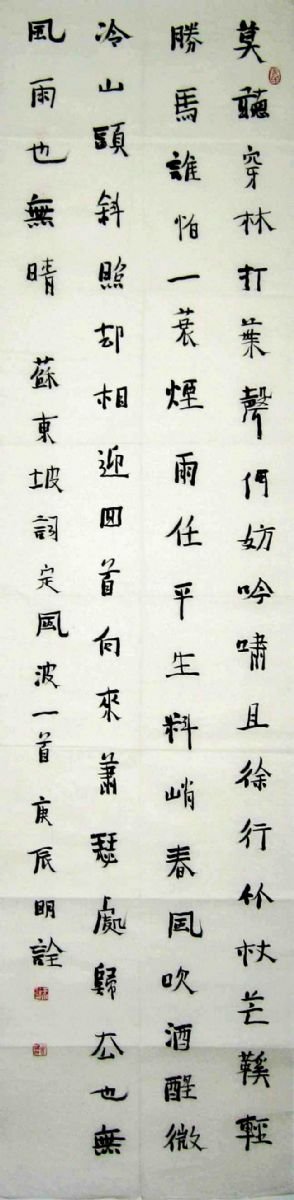 莫聽穿林打葉聲何妨吟嘯且徐行竹杖芒鞵輕
勝馬誰怕一蓑煙雨任平生料峭春風吹酒醒微
冷山頭斜照却相迎回首向來蕭瑟處歸去也無
風雨也無晴 蘇東坡詞定風波一首 庚辰明詮